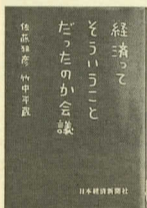 経済って
そういうこと
だったのか会議
佐藤雅彦 竹中平蔵
日本経済新聞社